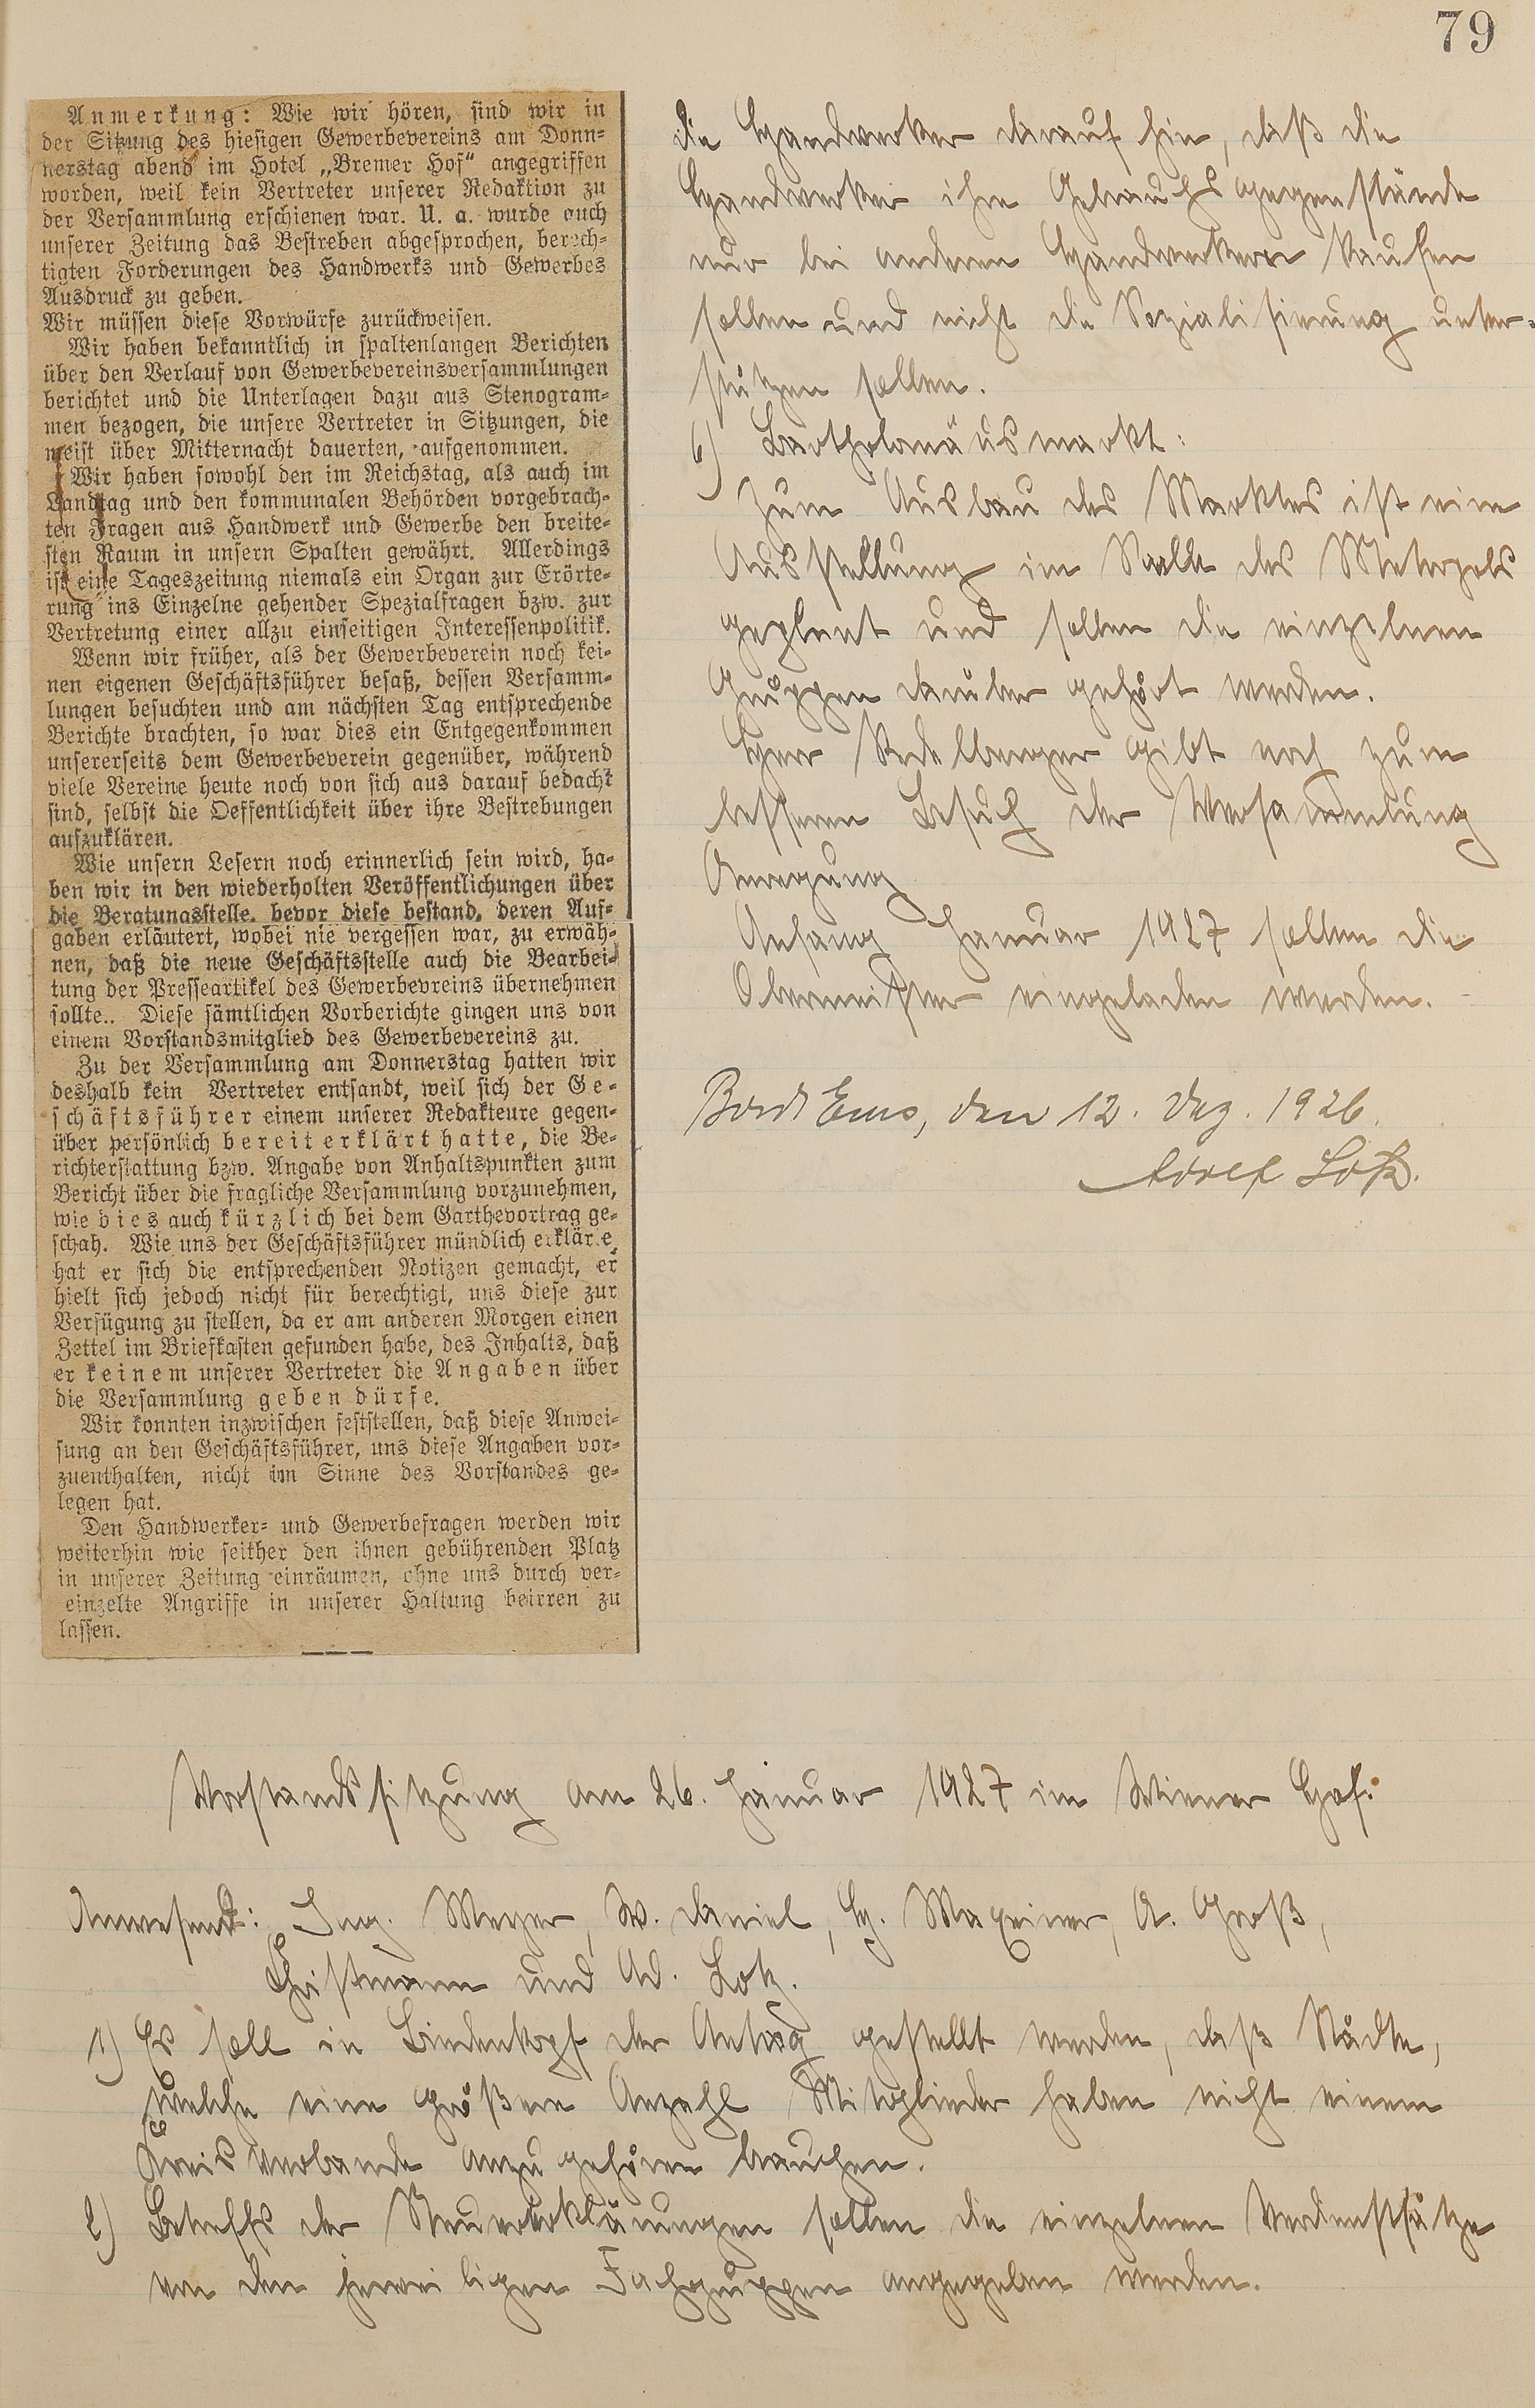 79
Anmerkung: Wie wir hören, sind wir in
der Sitzung des hiesigen Gewerbevereins am Donn-
nerstag abend im Hotel „Bremer Hof“ angegriffen
worden, weil kein Vertreter unserer Redaktion zu
der Versammlung erschienen war. U. a. wurde auch
unserer Zeitung das Bestreben abgesprochen, berech-
tigten Forderungen des Handwerks und Gewerbes
Ausdruck zu geben.
Wir müssen diese Vorwürfe zurückweisen.
Wir haben bekanntlich in spaltenlangen Berichten
über den Verlauf von Gewerbevereinsversammlungen
berichtet und die Unterlagen dazu aus Stenogram-
men bezogen, die unsere Vertreter in Sitzungen, die
meist über Mitternacht dauerten, aufgenommen.
Wir haben sowohl den im Reichstag, als auch im
Landtag und den kommunalen Behörden vorgebrach-
ten Fragen aus Handwerk und Gewerbe den breite-
sten Raum in unsern Spalten gewährt. Allerdings
ist eine Tageszeitung niemals ein Organ zur Erörte-
rung ins Einzelne gehender Spezialfragen bzw. zur
Vertretung einer allzu einseitigen Interessenpolitik.
Wenn wir früher, als der Gewerbeverein noch kei-
nen eigenen Geschäftsführer besaß, dessen Versamm-
lungen besuchten und am nächsten Tag entsprechende
Berichte brachten, so war dies ein Entgegenkommen
unsererseits dem Gewerbeverein gegenüber, während
viele Vereine heute noch von sich aus darauf bedacht
sind, selbst die Oeffentlichkeit über ihre Bestrebungen
aufzuklären.
Wie unsern Lesern noch erinnerlich sein wird, ha-
ben wir in den wiederholten Veröffentlichungen über
die Beratungsstelle, bevor diese bestand, deren Auf-
gaben erläutert, wobei nie vergessen war, zu erwäh-
nen, daß die neue Geschäftsstelle auch die Bearbei-
tung der Presseartikel des Gewerbevreins übernehmen
sollte.. Diese sämtlichen Vorberichte gingen uns von
einem Vorstandsmitglied des Gewerbevereins zu.
Zu der Versammlung am Donnerstag hatten wir
deshalb kein Vertreter entsandt, weil sich der Ge-
schäftsführer einem unserer Redakteure gegen-
über persönlich bereit erklärt hatte, die Be-
richterstattung bzw. Angabe von Anhaltspunkten zum
Bericht über die fragliche Versammlung vorzunehmen,
wie dies auch kürzlich bei dem Garthevortrag ge-
schah. Wie uns der Geschäftsführer mündlich erklärte,
hat er sich die entsprechenden Notizen gemacht, er
hielt sich jedoch nicht für berechtigt, uns diese zur
Verfügung zu stellen, da er am anderen Morgen einen
Zettel im Briefkasten gefunden habe, des Inhalts, daß
er keinem unserer Vertreter die Angaben über
die Versammlung geben dürfe.
Wir konnten inzwischen feststellen, daß diese Anwei-
sung an den Geschäftsführer, uns diese Angaben vor-
zuenthalten, nicht im Sinne des Vorstandes ge-
legen hat.
Den Handwerker- und Gewerbefragen werden wir
weiterhin wie seither den ihnen gebührenden Platz
in unserer Zeitung einräumen, ohne uns durch ver-
einzelte Angriffe in unserer Haltung beirren zu
lassen.
die Handwerker darauf hin, daß die
Handwerker ihre Gebrauchsgegenstände
nur bei anderen Handwerkern kaufen
sollen und nicht die Sozialisierung unter-
stützen sollen.
6) Bartholomäusmarkt:
Zum Ausbau des Marktes ist eine
Ausstellung im Saale des Metropols
geplant und sollen die einzelnen
Gruppen darüber gehört werden.
Herr gibt noch zum
besseren Besuch der Versammlung
Anregung
Anfang Januar 1927 sollen die
Obermeister eingeladen werden.
Bad Ems, den 12. Dez. 1926.
Adolf Lotz.
Vorstandssitzung am 26. Januar 1927 im Wiener Hof:
Anwesend: Ing. Meyer, W. Daniel, H. Maxeiner, A. Groß,
Christmann und Ad. Lotz.
1) Es soll in Lindenkopf der Antrag gestellt werden, daß Städte,
welche eine größere Anzahl Mitglieder haben nicht einem
Kreisverbande anzugehören brauchen.
2) Betreffs der Steuererklärungen sollen die einzelnen Verdienstsätze
von den jeweiligen Fachgruppen angegeben werden.